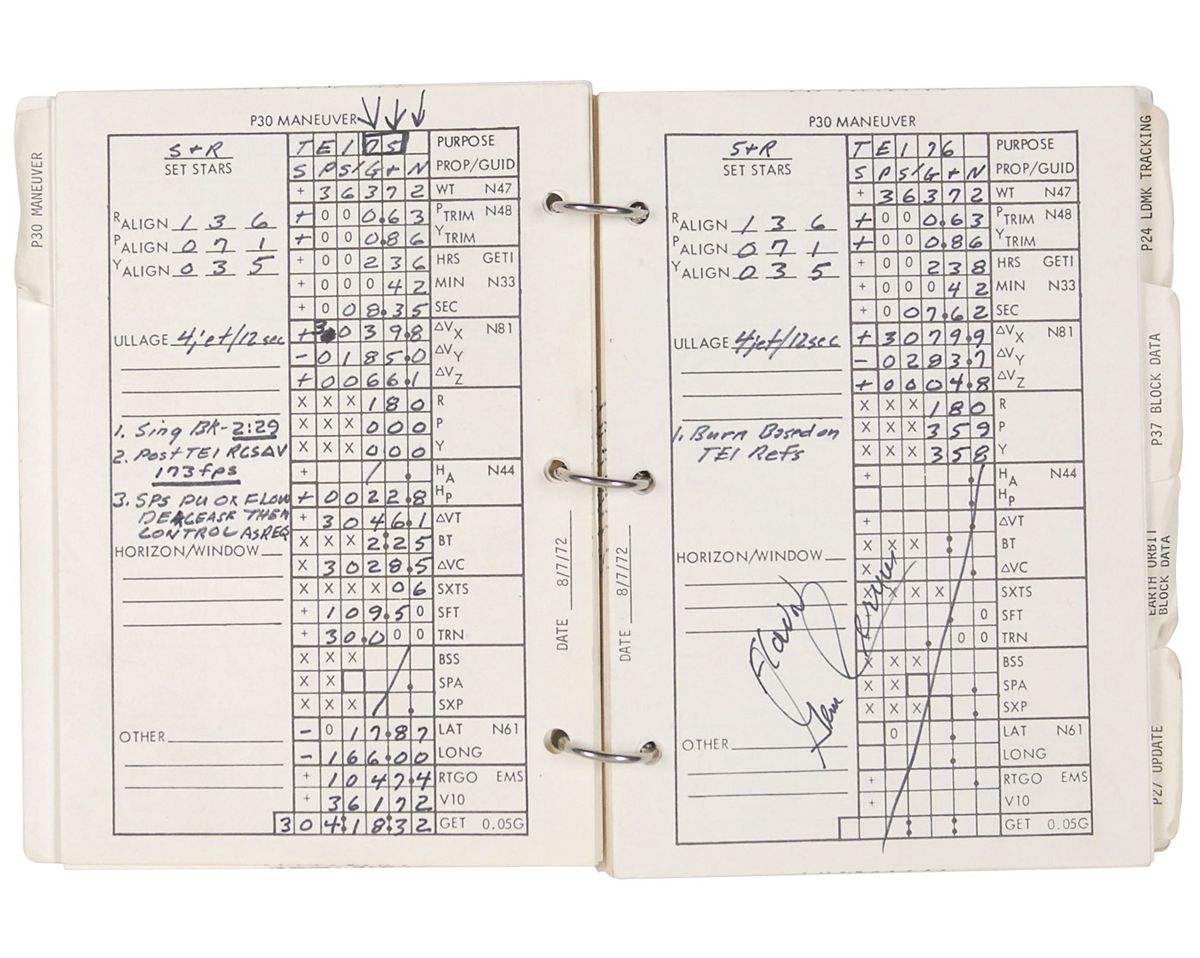 P30 MANEUVER
P30 MANEUVER
S+R
SET STARS
T E I 75 PURPOSE
S P S / G + N PROP/GUID
+ 3 6 3 7 2 WT N47
RALIGN 1 3 6
+ 0 0 0.6 3 PTRIM N48
PALIGN 0 7 1
+ 0 0 0.8 6 YTRIM
YALIGN 0 3 5
+ 0 0 2 3 6 HRS GETI
+ 0 0 0 4 2 MIN N33
+ 0 0 8.3 5 SEC
ULLAGE 4jet/12sec
+ 3 0 3 9 8 ΔVX N81
- 0 1 8 5.0 ΔVY
+ 0 0 6 6.1 ΔVZ
X X X 1 8 0 R
1. Sing BK-2:29
X X X 0 0 0 P
2. Post TEI RCSΔV
X X X 0 0 0 Y
173 fps
+ HA N44
3. SPS PU OX FLOW
+ 0 0 2 2.8 HP
DECREASE THEN
+ 3 0 4 6.1 ΔVT
CONTROL AS REQ
X X X 2:2 5 BT
HORIZON/WINDOW
X 3 0 2 8.5 ΔVC
X X X X 0 6 SXTS
+ 1 0 9.5 0 SFT
+ 3 0.0 0 0 TRN
X X X BSS
X X SPA
X X X SXP
OTHER
- 0 1 7.8 7 LAT N61
- 1 6 6.0 0 LONG
+ 1 0 4 7.4 RTGO EMS
+ 3 6 1 7 2 V10
3 0 4:1 8:3 2 GET 0.05G
DATE 8/7/72
DATE 8/7/72
P30 MANEUVER
S+R
SET STARS
T E I 76 PURPOSE
S P S / G + N PROP/GUID
+ 3 6 3 7 2 WT N47
RALIGN 1 3 6
+ 0 0 0.6 3 PTRIM N48
PALIGN 0 7 1
+ 0 0 0.8 6 YTRIM
YALIGN 0 3 5
+ 0 0 2 3 8 HRS GETI
+ 0 0 0 4 2 MIN N33
+ 0 0 7.6 2 SEC
ULLAGE 4jet/12sec
+ 3 0 7 9.9 ΔVX N81
- 0 2 8 3.7 ΔVY
+ 0 0 0 4.8 ΔVZ
X X X 1 8 0 R
1. Burn Based on
X X X 3 5 9 P
TEI Refs
X X X 3 5 8 Y
+ HA N44
HP
+ ΔVT
X X X BT
HORIZON/WINDOW
X ΔVC
X X X X SXTS
0 SFT
0 0 TRN
X X X BSS
X X SPA
X X X SXP
Gene
OTHER
0 LAT N61
LONG
+ RTGO EMS
+ V10
GET 0.05G
P24 LDMK TRACKING
P37 BLOCK DATA
EARTH ORBIT
BLOCK DATA
P27 UPDATE